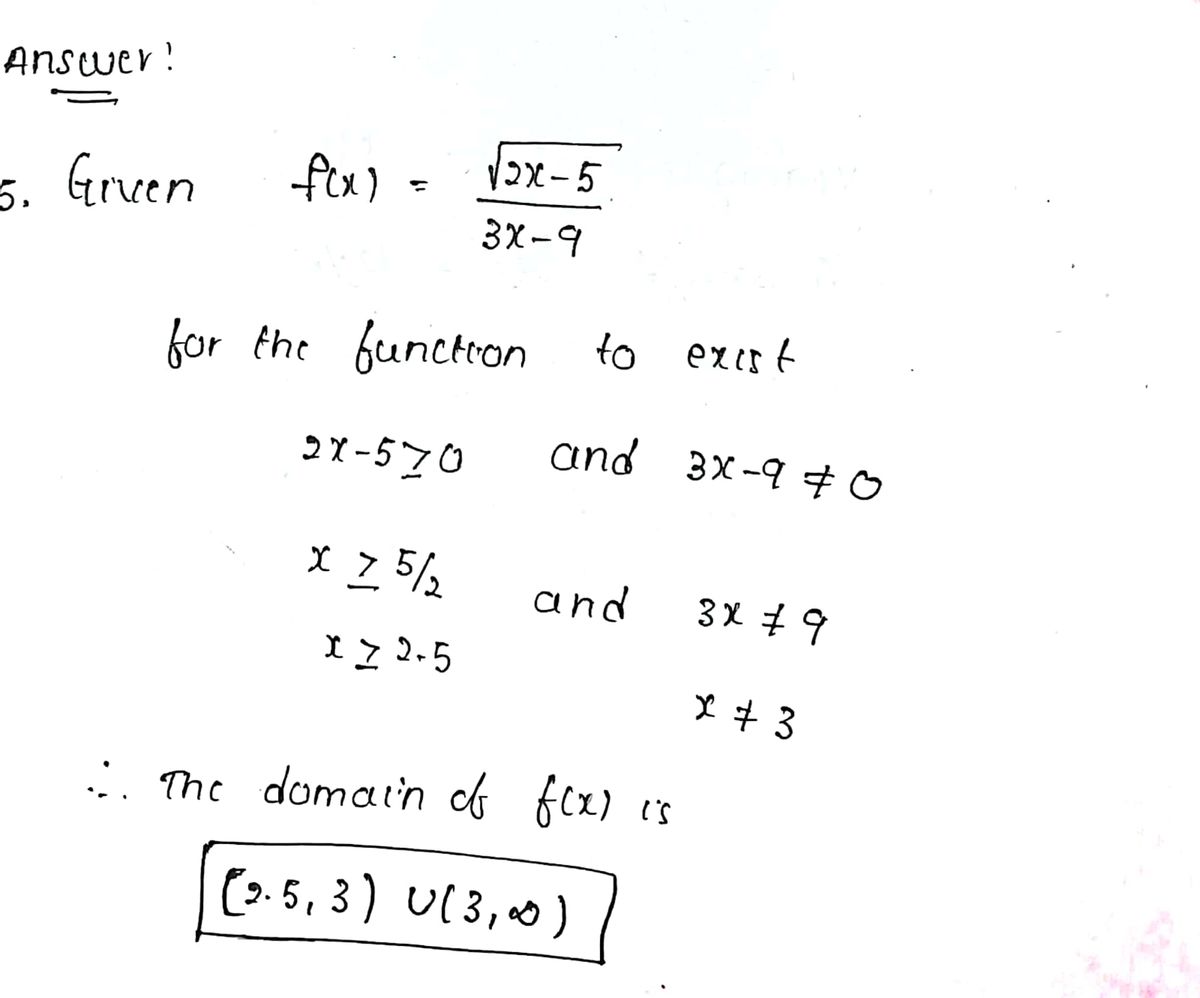 Answer!
5. Given f(x) = √2x-5 / 3x-9
for the function to exist
2x-5≥0 and 3x-9 ≠ 0
x ≥ 5/2 and 3x ≠ 9
x ≥ 2.5
x ≠ 3
∴ The domain of f(x) is
[2.5, 3) ∪ (3, ∞)